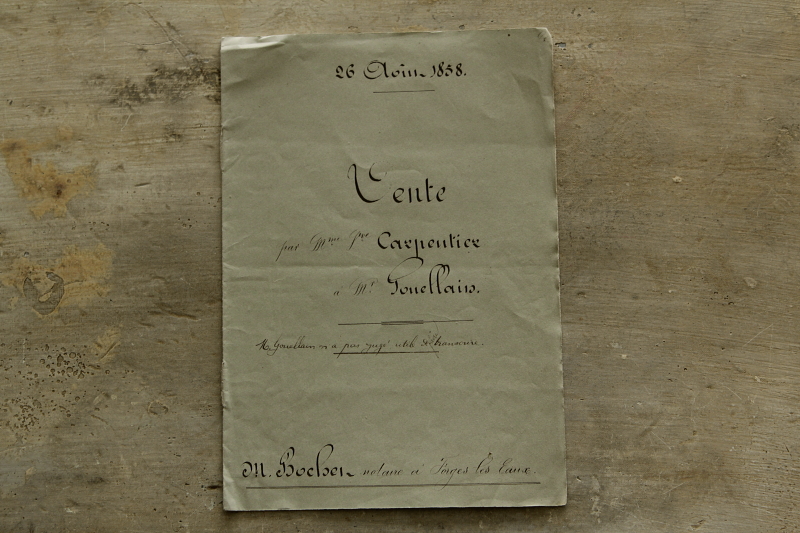 26 Août 1858.
Vente
par Mme Vve Carpentier
à Mr Gouellain.
M. Gouellain n'a pas jugé utile de transcrire.
M. Bocher notaire à Forges les Eaux.